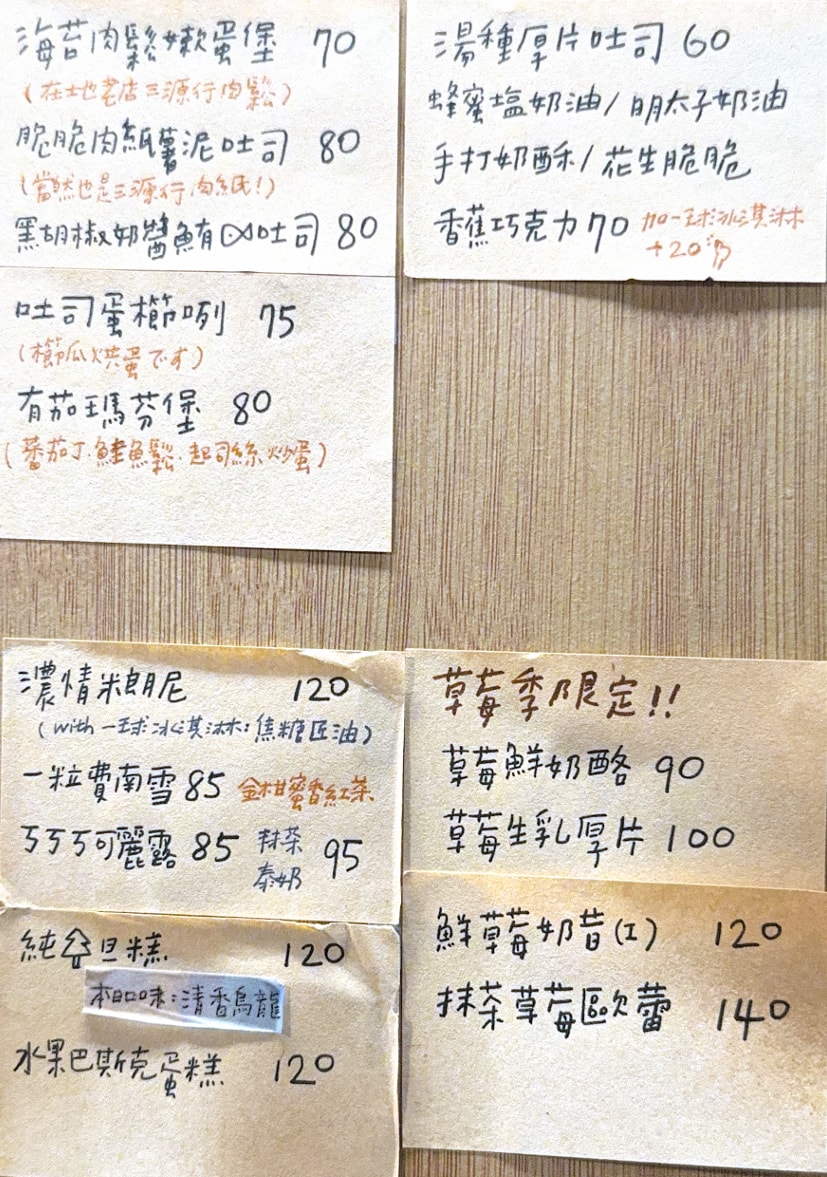 海苔肉鬆嫩蛋堡 70
(在地老店三源行肉鬆)
脆脆肉紙薯泥吐司 80
(當然也是三源行肉紙!)
黑胡椒奶醬鮪吐司 80
吐司蛋櫛咧 75
(櫛瓜烘蛋です)
有茄瑪芬堡 80
(蕃茄丁.鮭魚鬆.起司絲.炒蛋)
湯種厚片吐司 60
蜂蜜塩奶油/明太子奶油
手打奶酥/花生脆脆
香蕉巧克力 70 加一球冰淇淋
+20
濃情米朗尼 120
(with 一球冰淇淋:焦糖匠油)
一粒費南雪 85 金柑蜜香紅茶
ㄎㄎㄎ可麗露 85 抹茶 95
泰奶
純旦糕 120
本日口味:清香烏龍
水果巴斯克蛋糕 120
草莓季限定!!
草莓鮮奶酪 90
草莓生乳厚片 100
鮮草莓奶昔(I) 120
抹茶草莓歐蕾 140